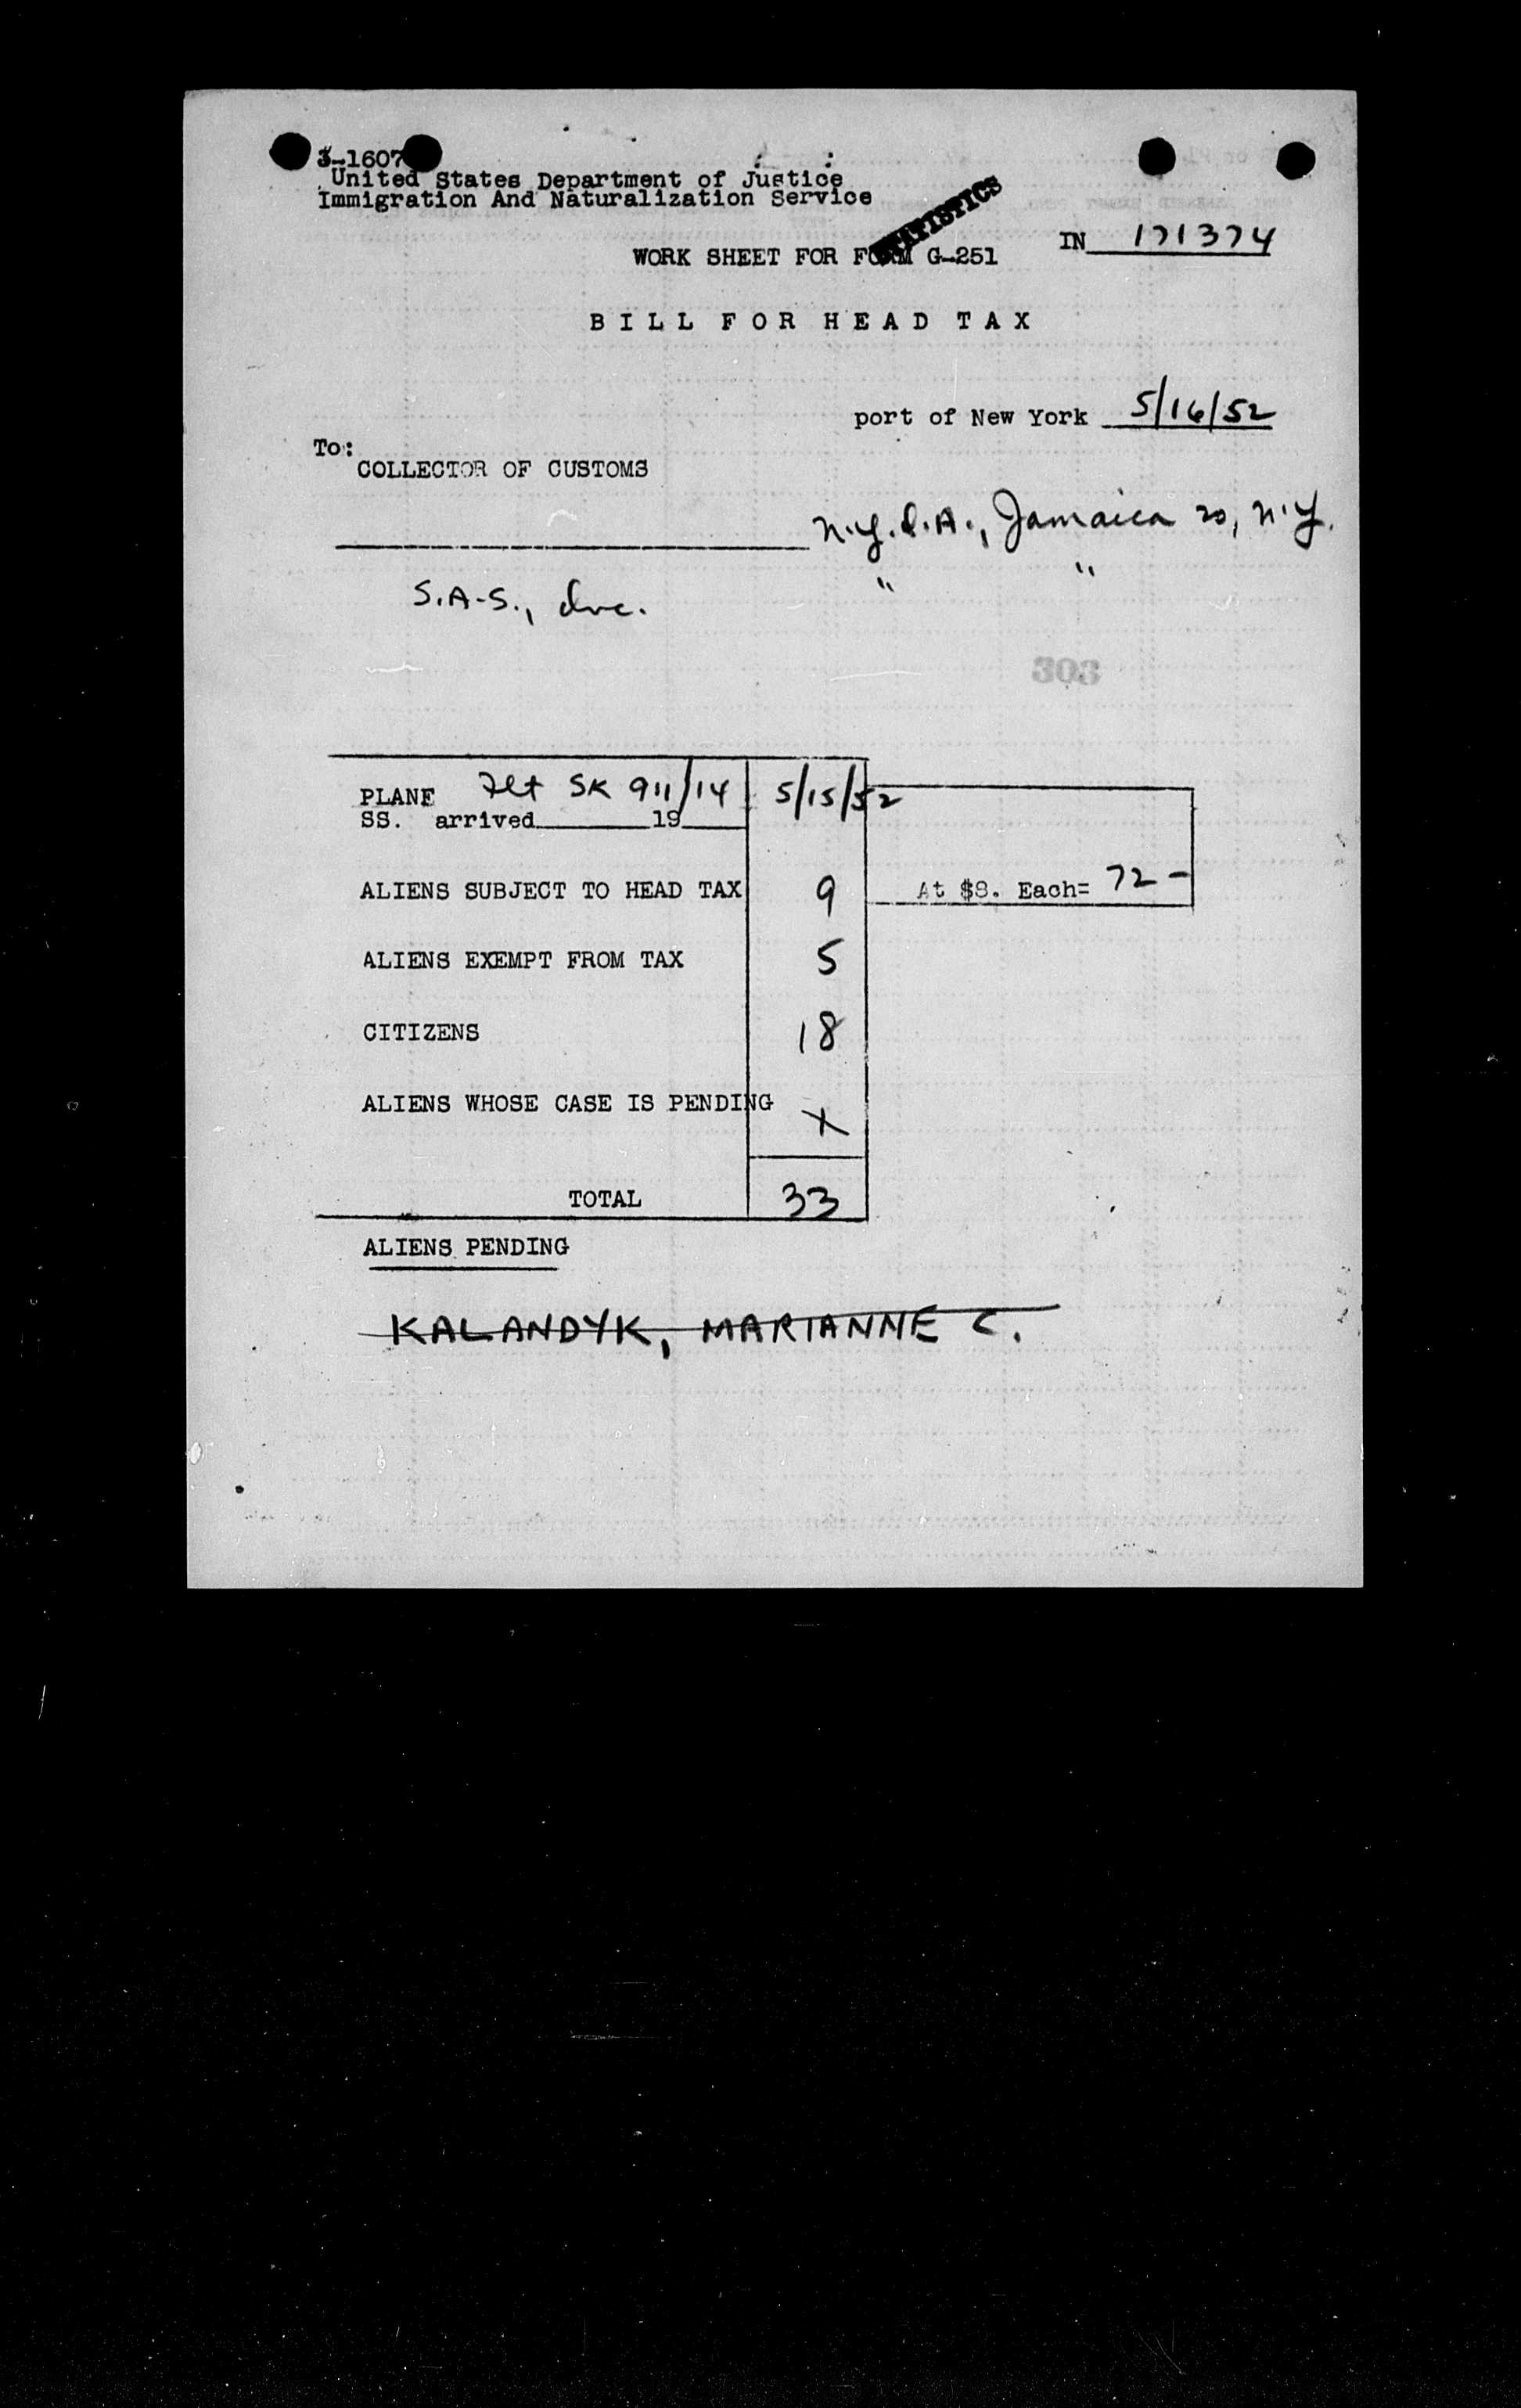 3-1607
United States Department of Justice
Immigration And Naturalization Service
STATISTICS
WORK SHEET FOR FORM G-251
IN 171374
BILL FOR HEAD TAX
port of New York 5/16/52
To:
COLLECTOR OF CUSTOMS
N.Y.I.A., Jamaica 20, N.Y.
S.A.S., Inc. " "
303
PLANE Flt SK 911/14 5/15/52
SS. arrived 19
ALIENS SUBJECT TO HEAD TAX 9 At $8. Each= 72-
ALIENS EXEMPT FROM TAX 5
CITIZENS 18
ALIENS WHOSE CASE IS PENDING X
TOTAL 33
ALIENS PENDING
KALANDYK, MARIANNE C.